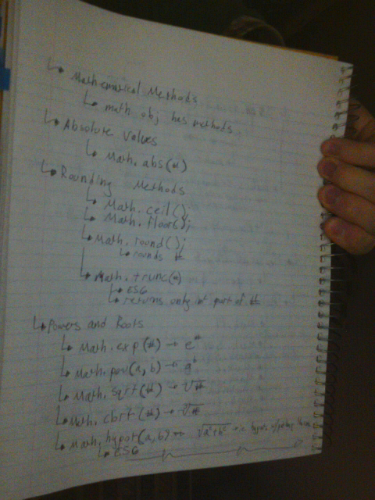 Mathematical Methods
math obj has methods
Absolute Values
Math.abs(#)
Rounding Methods
Math.ceil();
Math.floor();
Math.round();
rounds #
Math.trunc(#)
ES6
returns only int part of #
Powers and Roots
Math.exp(#) → e^#
Math.pow(a,b) → a^b
Math.sqrt(#) → √#
Math.cbrt(#) → ∛#
Math.hypot(a,b) → √a²+b²
ES6